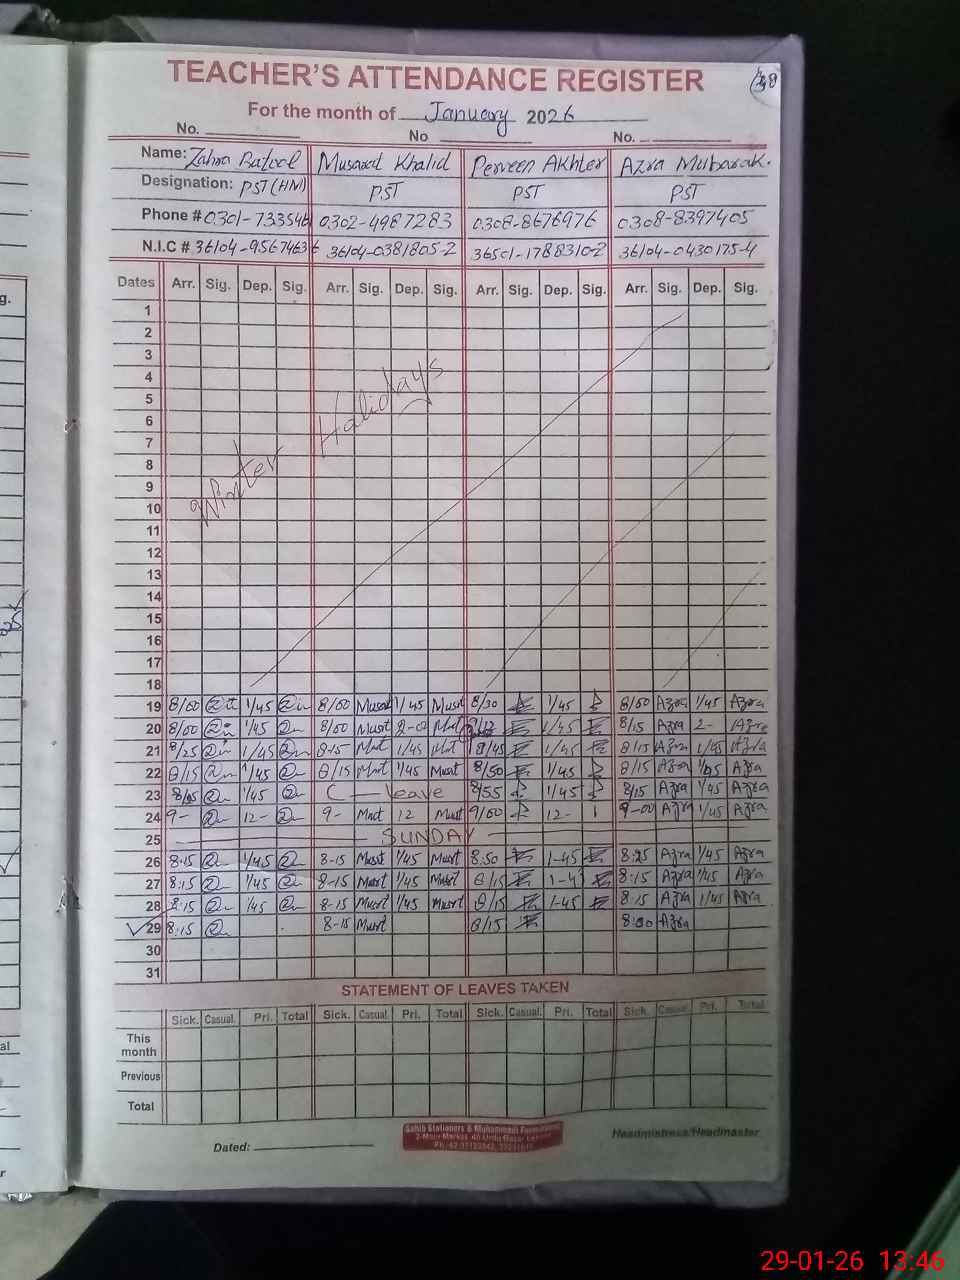 38
TEACHER'S ATTENDANCE REGISTER
For the month of January 2026
No. No No.
Name: Zahra Batool Musarat Khalid Perveen Akhter Azra Mubarak.
Designation: PST (HM) PST PST PST
Phone # 0301-733546 0302-4987283 0308-8676976 0308-8397405
N.I.C # 36104-9567463 36104-0381805-2 36501-1788310-2 36104-0430175-4
Dates Arr. Sig. Dep. Sig. Arr. Sig. Dep. Sig. Arr. Sig. Dep. Sig. Arr. Sig. Dep. Sig.
1
2
3
4
5
6
7
8
9
10
11
12
13
14
15
16
17
18
Winter Halidays
19 8/00 1/45 8/00 Musrt 1/45 Musrt 8/30 1/45 8/00 Azra 1/45 Azra
20 8/00 1/45 8/00 Musrt 2-00 1/45 8/15 Azra 2- Azra
21 8/25 1/45 8-15 1/45 8/45 1/45 8/15 Azra 1/45 Azra
22 8/15 1/45 8/15 1/45 Musrt 8/50 1/45 8/15 Azra 1/45 Azra
23 1/45 C — leave 8/55 1/45 8/15 Azra 1/45 Azra
24 9- 12- 9- 12 Musrt 9/00 12- 9-00 Azra 1/45 Azra
25 SUNDAY
26 8-15 1/45 8-15 Musrt 1/45 Musrt 8:50 1-45 Azra 1/45 Azra
27 8:15 1/45 8-15 Musrt 1/45 Musrt 8/15 8:15 Azra 1/45 Azra
28 8:15 1/45 8-15 Musrt 1/45 Musrt 8/15 1-45 8:15 Azra 1/45 Azra
29 8:15 8-15 Musrt 8/15 Azra
30
31
STATEMENT OF LEAVES TAKEN
Sick. Casual. Pri. Total Sick. Casual. Pri. Total Sick. Casual. Pri. Total Sick. Casual. Pri. Total
This month
Previous
Total
Dated: Headmistress/Headmaster
29-01-26 13:46